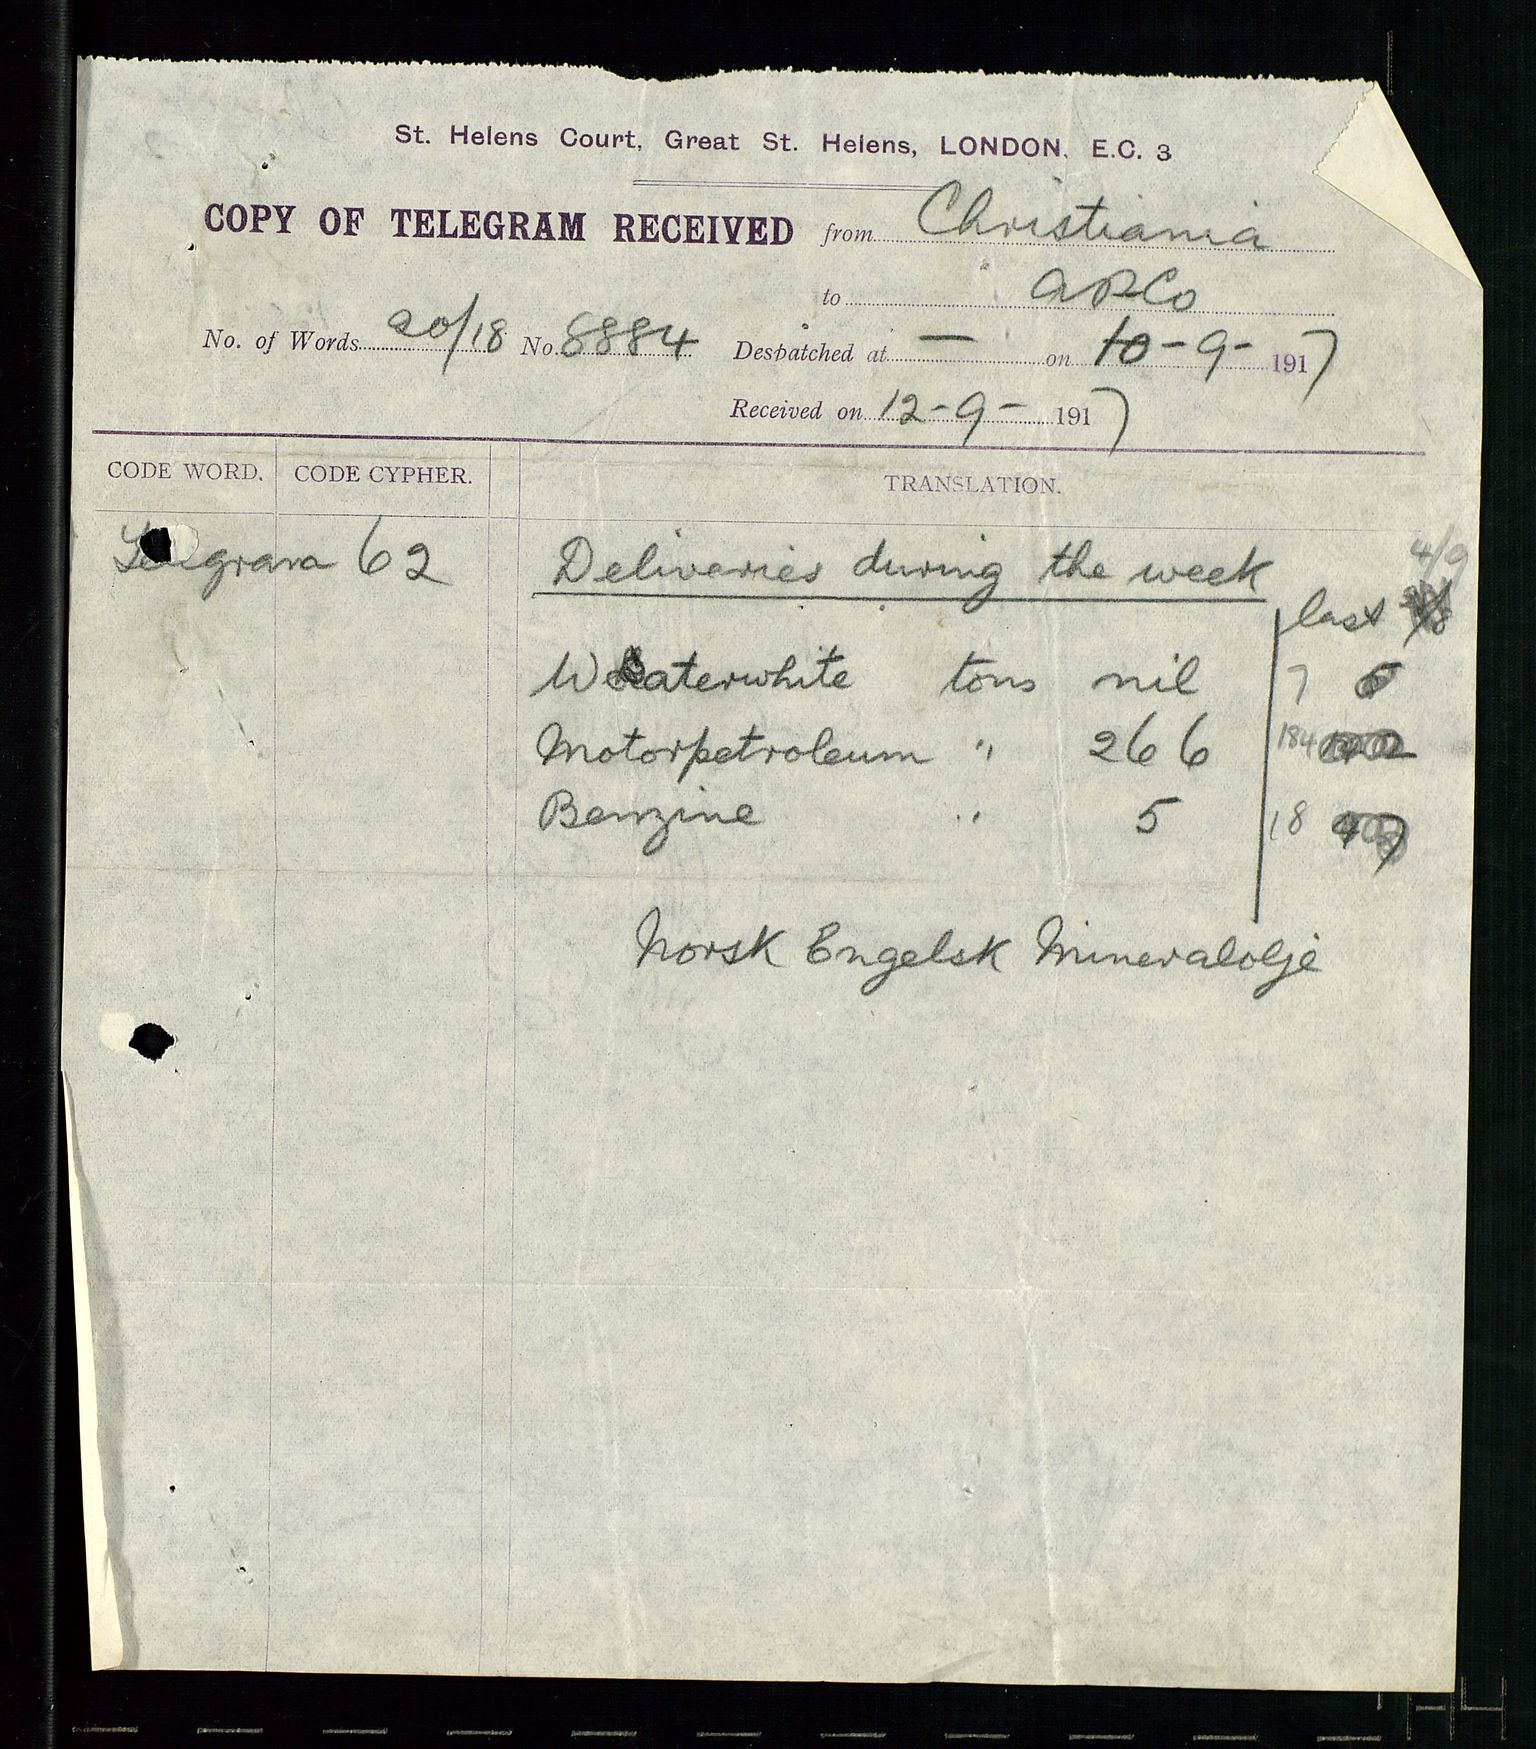 St. Helens Court, Great St. Helens, LONDON, E.C. 3
COPY OF TELEGRAM RECEIVED from Christiania
to APCo
No. of Words 20/18 No. 8884 Despatched at — on 10-9-1917
Received on 12-9-1917
CODE WORD. CODE CYPHER. TRANSLATION.
62 Deliveries during the week 4/9
last
Waterwhite tons nil 7
Motorpetroleum " 266 184
Benzine " 5 18
Norsk Engelsk Mineralolje